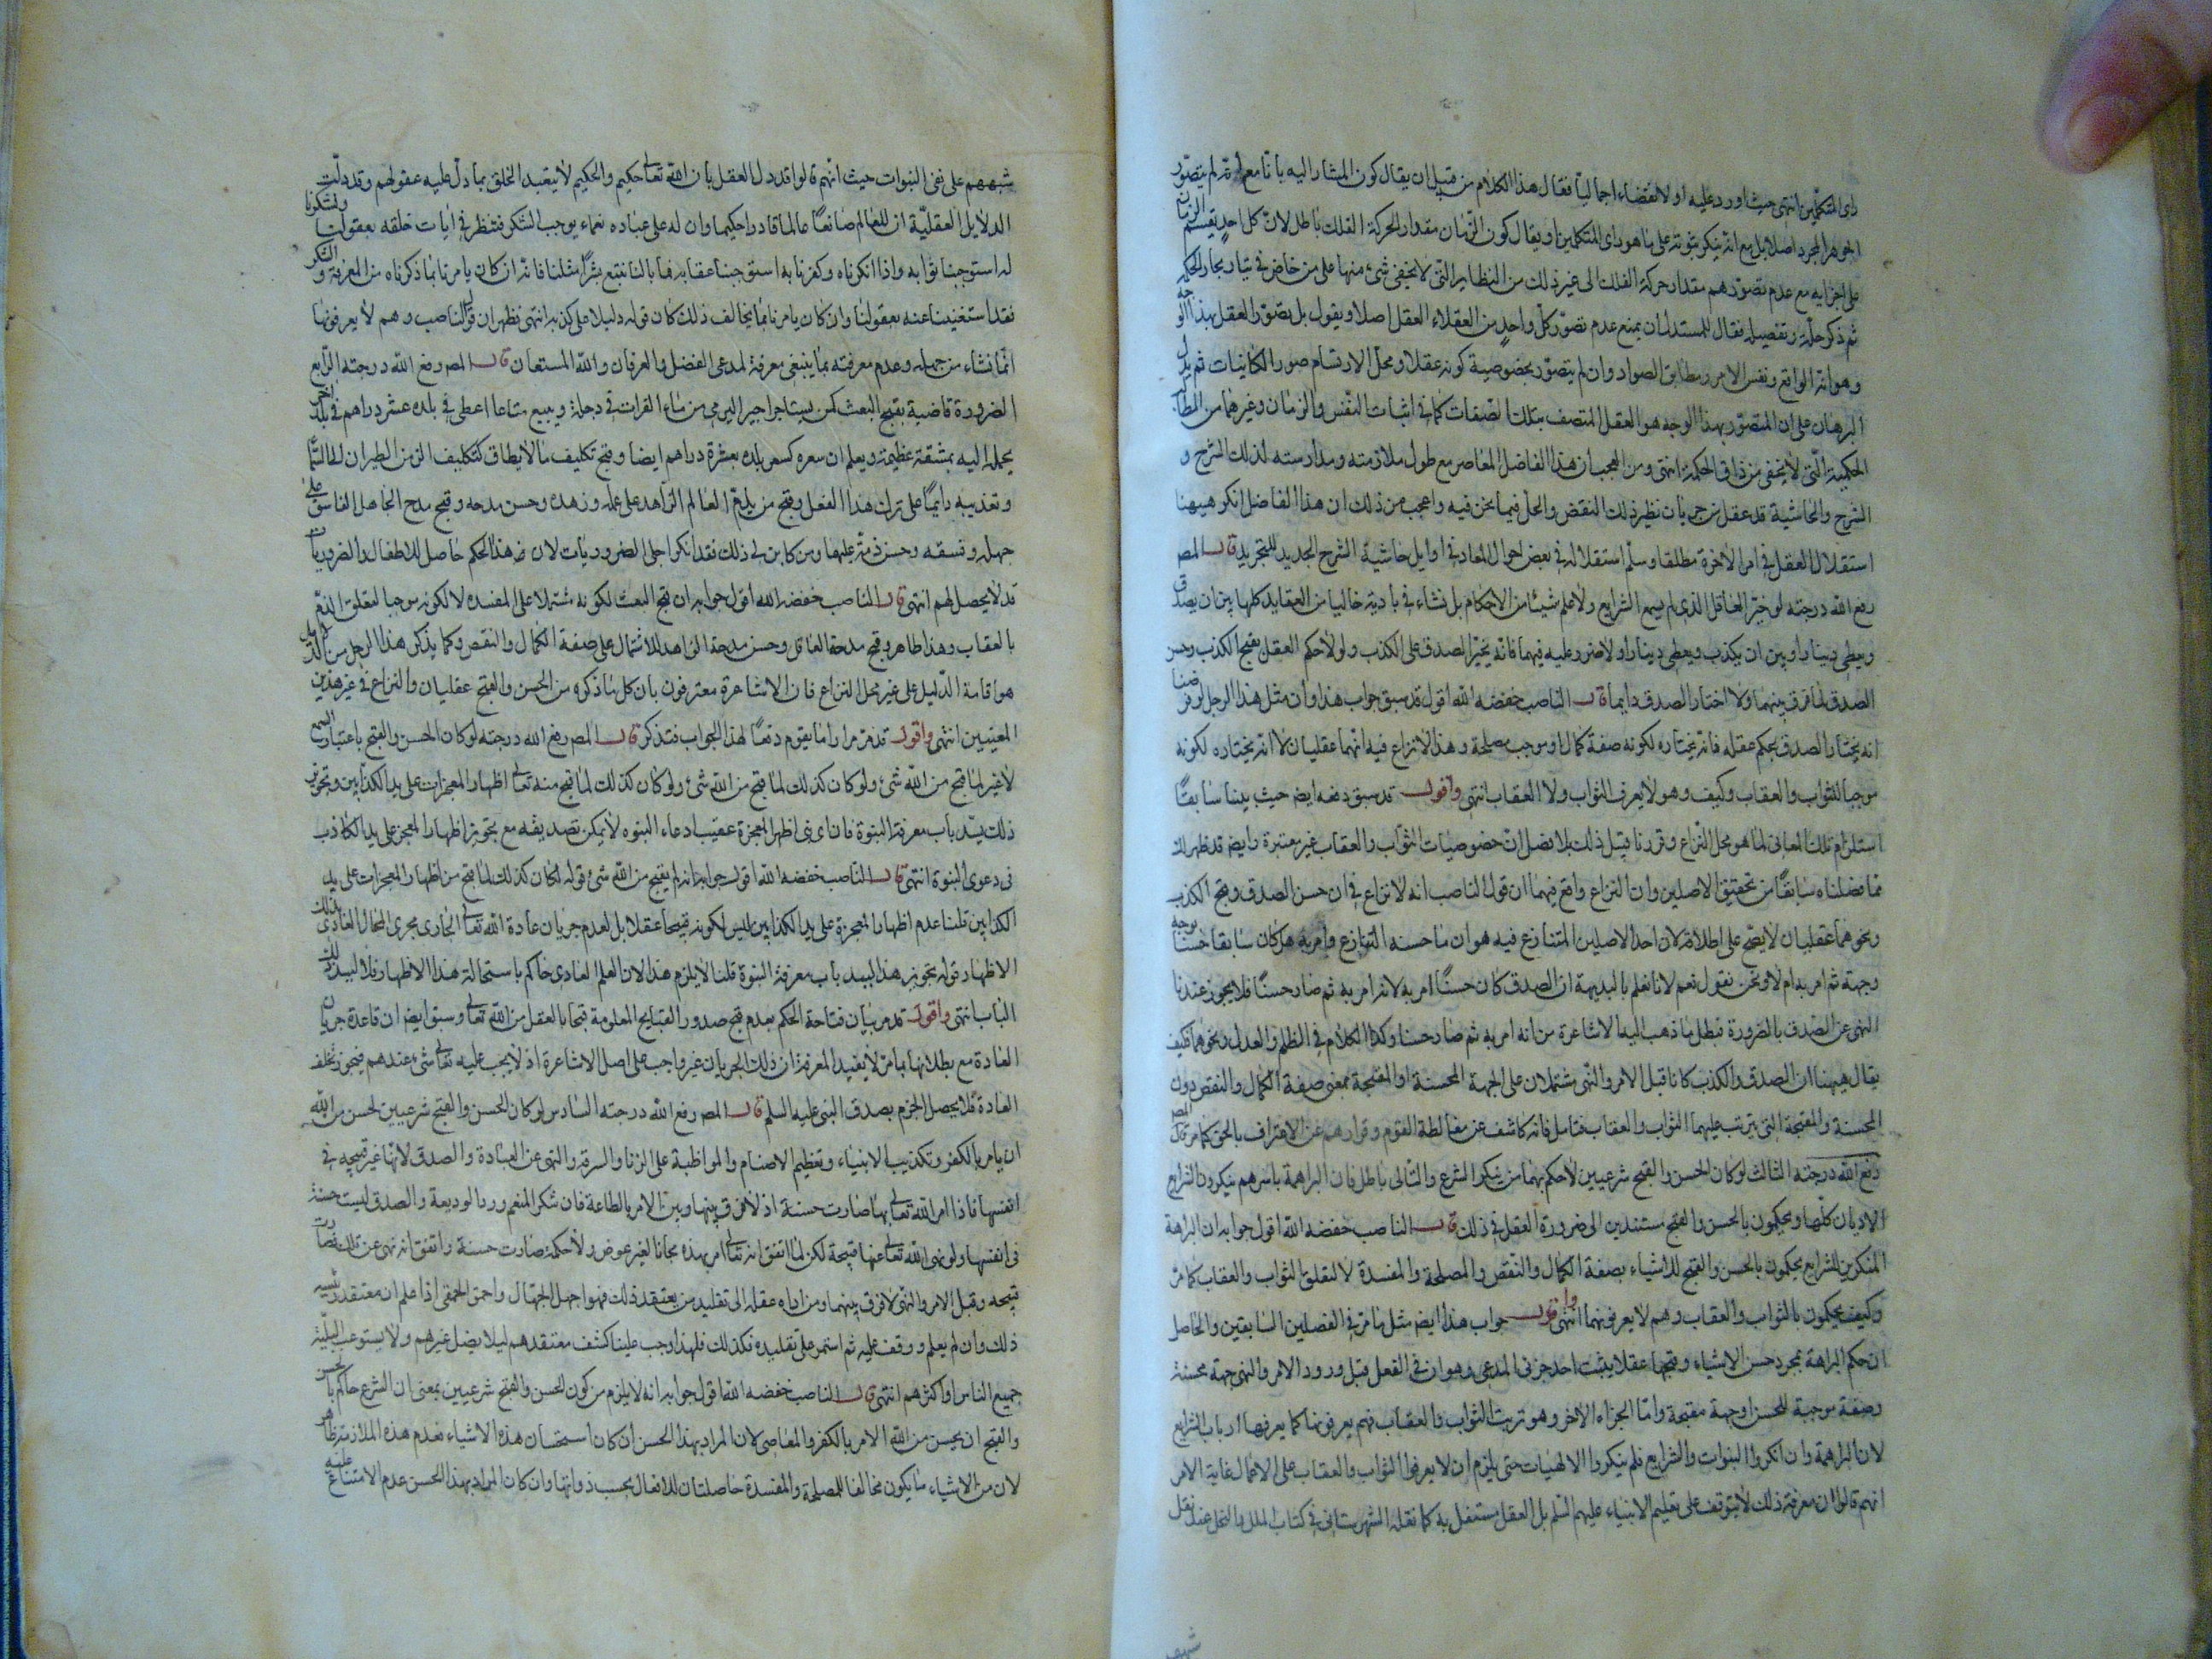 رأى المتكلمين انتهى حيث اورد عليه اولا نقضاء اجماليا فقال هذا الكلام من قبيل ان يقال كون المشار اليه بانا مع انه لم يتصور
الجوهر المجرد اصلا بل مع انه ينكر ثبوته على ما هو رأى المتكلمين او يقال كون الزمان مقدار الحركة الفلك باطل لان كل احد يقسم الزمان
على اجزايه مع عدم تصورهم مقدار حركة الفلك الى غير ذلك من النظاير التى لا يخفى شئ منها على من خاض فى تيار بحار الحكمة
ثم ذكر حله وتفصيله فقال للمستدل ان يمنع عدم تصور كل واحد من العقلاء العقل اصلا ويقول بل يتصور العقل بهذا الوجه
وهو انه الواقع ونفس الامر ومطابق الصوادق وان لم يتصور بخصوصية كونه عقلا ومحل الارتسام صور الكاينات ثم يدل
البرهان على ان المتصور بهذا الوجه هو العقل المتصف بتلك الصفات كما فى اثبات النفس والزمان وغيرهما من المطالب
الحكمية التى لا يخفى من ذاق الحكمة انتهى ومن العجب ان هذا الفاضل المعاصر مع طول ملازمته ومدارسته لذلك الشرح و
الشرح والحاشية قد عقل من جريان نظير ذلك النقض والحل فيما نحن فيه واعجب من ذلك ان هذا الفاضل انكر ههنا
استقلال العقل فى امر الاخرة مطلقا وسلم استقلاله فى بعض احوال المعاد فى اوايل حاشية الشرح الجديد للتجريد قال المص
رفع الله درجته لو خير العاقل الذى لم يسمع الشرايع ولا علم شيئا من الاحكام بل نشاء فى بادية خاليا من العقايد كلها بين ان يصدق
ويعطى دينارا وبين ان يكذب ويعطى دينارا ولا ضرر عليه فيهما فانه يتخير الصدق على الكذب ولولا حكم العقل بقبح الكذب وحسن
الصدق لما فرق بينهما ولا اختار الصدق دايما قال الناصب خفضه الله اقول قد سبق جواب هذا وان مثل هذا الرجل لو فرضنا
انه يختار الصدق بحكم عقله فانه يختاره لكونه صفة كمال او موجب مصلحة وهذا لا نزاع فيه انهما عقليان لا انه يختاره لكونه
موجبا للثواب والعقاب وكيف وهو لا يعرف الثواب ولا العقاب انتهى واقول قد سبق دفعه ايضا حيث بينا سابقا
استلزام تلك المعانى لما هو محل النزاع وقررنا قبيل ذلك بلا فصل ان خصوصيات الثواب والعقاب غير معتبرة وايضا قد ظهر لك
مما فصلناه سابقا من تحقيق الاصلين وان النزاع واقع فيهما ان قول الناصب انه لا نزاع فى ان حسن الصدق وقبح الكذب
ونحوهما عقليان لا يصح على اطلاقه لان احد الاصلين المتنازع فيه هو ان ما حسنه الشارع وامر به هل كان سابقا حسنا بوجه
وجهة ثم امر به ام لا ونحن نقول نعم لانا نعلم بالبديهة ان الصدق كان حسنا امر به لا انه امر به ثم صار حسنا فلا يجوز عندنا
النهى عن الصدق بالضرورة فبطل ما ذهب اليه الاشاعرة من انه امر به ثم صار حسنا وكذا الكلام فى الظلم والعدل ونحوهما فكيف
يقال ههنا ان الصدق والكذب كانا قبل الامر والنهى مشتملان على الجهة المحسنة او المقبحة بمعنى صفة الكمال والنقص دون
المحسنة والمقبحة التى يترتب عليهما الثواب والعقاب فتامل فانه كاشف عن مغالطة القوم وفرارهم عن الاعتراف بالحق كما مر قال المص
رفع الله درجته الثالث لو كان الحسن والقبح شرعيين لا حكم بهما من ينكر الشرع والتالى باطل فان البراهمة باسرهم ينكرون الشرايع
الاديان كلها ويحكمون بالحسن والقبح مستندين الى ضرورة العقل فى ذلك قال الناصب خفضه الله اقول جوابه ان البراهمة
المنكرين للشرايع يحكمون بالحسن والقبح للاشياء بصفة الكمال والنقص والمصلحة والمفسدة لا لتعلق الثواب والعقاب كما مر
وكيف يحكمون بالثواب والعقاب وهم لا يعرفونهما انتهى واقول جواب هذا ايضا مثل ما مر فى الفصلين السابقين والحاصل
ان حكم البراهمة بمجرد حسن الاشياء وقبحها عقلا يثبت احد جزئى المدعى وهو ان فى الفعل قبل ورود الامر والنهى جهة محسنة
وصفة موجبة للحسن او جهة مقبحة واما الجزاء الاخر وهو ترتب الثواب والعقاب فهم يعرفونها كما يعرفها ارباب الشرايع
لان البراهمة وان انكروا النبوات والشرايع فلم ينكروا الالهيات حتى يلزم ان لا يعرفوا الثواب والعقاب على الاعمال غاية الامر
انهم قالوا ان معرفة ذلك لا يتوقف على تعليم الانبياء عليهم السلم بل العقل مستقل به كما نقله الشهرستانى فى كتاب الملل والنحل عند نقل
شبههم
شبههم على نفى النبوات حيث انهم قالوا قد دل العقل بان الله تعالى حكيم والحكيم لا يتعبد الخلق بما دل عليه عقولهم وقد دلت
الدلايل العقلية ان للعالم صانعا عالما قادرا حكيما وان له على عباده نعماء يوجب الشكر فننظر فى ايات خلقه بعقولنا ونشكره
له استوجبنا ثوابه واذا انكرناه وكفرنا به استوجبنا عقابه فما بالنا نتبع بشرا مثلنا فانه ان كان يامرنا بما ذكرناه من المعرفة و الشكر
فقد استغنينا عنه بعقولنا وان كان يامرنا بما يخالف ذلك كان قوله دليلا على كذبه انتهى فظهر ان قول الناصب وهم لا يعرفونها
انما نشاء من جهله وعدم معرفته بما ينبغى معرفة لمدعى الفضل والعرفان والله المستعان قال المص رفع الله درجته الرابع
الضرورة قاضية بقبح العبث كمن يستاجر اجيرا ليرمى من ماء الفرات فى دجلة ويبيع متاعا اعطى فى بلده عشر دراهم فى بلد اخر
يحمله اليه بمشقة عظيمة ويعلم ان سعره كسعر بلده بعشرة دراهم ايضا وقبح تكليف ما لا يطاق كتكليف الزمن الطيران الى السماء
وتعذيبه دايما على ترك هذا الفعل وقبح من يذم العالم الزاهد على علمه وزهده وحسن مدحه وقبح مدح الجاهل الفاسق على
جهله وفسقه وحسن ذمه عليهما ومن كابر فى ذلك فقد انكر اجلى الضروريات لان هذا الحكم حاصل للاطفال والضروريات
قد لا يحصل لهم انتهى قال الناصب خفضه الله اقول جوابه ان قبح العبث لكونه مشتملا على المفسده لا لكونه موجبا لتعلق الذم
بالعقاب وهذا ظاهر وقبح مدحة الفاسق وحسن مدحة الزاهد للاشتمال على صفة الكمال والنقص وكما يذكر هذا الرجل من الدلايل
هو اقامة الدليل على غير محل النزاع فان الاشاعرة معترفون بان كل ما ذكره من الحسن والقبح عقليان والنزاع فى غير هذين
المعنيين انتهى واقول قد مر مرارا ما يقوم دفعا لهذا الجواب فتذكر قال المص رفع الله درجته لو كان الحسن والقبح باعتبار السمع
لا غير لما قبح من الله شئ ولو كان كذلك لما قبح من الله شئ ولو كان كذلك لما قبح منه تعالى اظهار المعجزات على يد الكذابين وتجويز
ذلك يسد باب معرفة النبوة فان اى نبى اظهر المعجزة عقيب ادعاء النبوه لا يمكن تصديقه مع تجويز اظهار المعجز على يد الكاذب
فى دعوى النبوة انتهى قال الناصب خفضه الله اقول جوابه انه لم يقبح من الله شئ قوله لو كان كذلك لما قبح من اظهار المعجزات على يد
الكذابين قلنا عدم اظهار المعجزة على يد الكذابين ليس لكونه قبيحا عقلا بل لعدم جريان عادة الله تعالى الجارى مجرى المحال العادى بذلك
الاظهار قوله تجويز هذا يسد باب معرفة النبوة قلنا لا يلزم هذا لان العلم العادى حاكم باستحالة هذا الاظهار فلا يسد ذلك
الباب انتهى واقول قد مر بيان قباحة الحكم بعدم قبح صدور القبايح المعلومة قبحها بالعقل من الله تعالى وسبق ايضا ان قاعدة جريان
العادة مع بطلانها بما مر لا يفيد المعرفة ان ذلك الجريان غير واجب على اصل الاشاعرة اذ لا يجب عليه تعالى شئ عندهم فيجوز تخلف
العادة فلا يحصل الجزم بصدق النبى عليه السلم قال المص رفع الله درجته السادس لو كان الحسن والقبح شرعيين لحسن من الله
ان يامر بالكفر وتكذيب الانبياء وتعظيم الاصنام والمواظبة على الزنا والسرقة والنهى عن العبادة والصدق لانها غير قبيحه فى
انفسها فاذا امر الله تعالى بها صارت حسنة اذ لا فرق بينها وبين الامر بالطاعة فان شكر المنعم ورد الوديعة والصدق ليست حسنة
فى انفسها ولو نهى الله تعالى عنها قبيحة لكن لما اتفق انه تعالى امر بهذه مجانا لغير غرض ولا حكمة صارت حسنة واتفق انه نهى عن تلك فصارت
قبيحه وقبل الامر والنهى لا فرق بينهما ومن اداه عقله الى تقليد من يعتقد ذلك فهو اجهل الجهال واحمق الحمقى اذا علم ان معتقد رئيسه
ذلك وان لم يعلم ووقف عليه ثم استمر على تقليده فكذلك فلهذا وجب علينا كشف معتقدهم ليلا يضل غيرهم ولا يستوعب البلية
جميع الناس او اكثرهم انتهى قال الناصب خفضه الله اقول جوابه انه لا يلزم من كون الحسن والقبح شرعيين بمعنى ان الشرع حاكم بالحسن
والقبح ان يحسن من الله الامر بالكفر والمعاصى لان المراد بهذا الحسن ان كان استحسان هذه الاشياء فعدم هذه الملازمة ظاهر
لان من الاشياء ما يكون مخالفا للمصلحة والمفسدة حاصلتان للافعال بحسب ذواتها وان كان المراد بهذا الحسن عدم الامتناع عليه